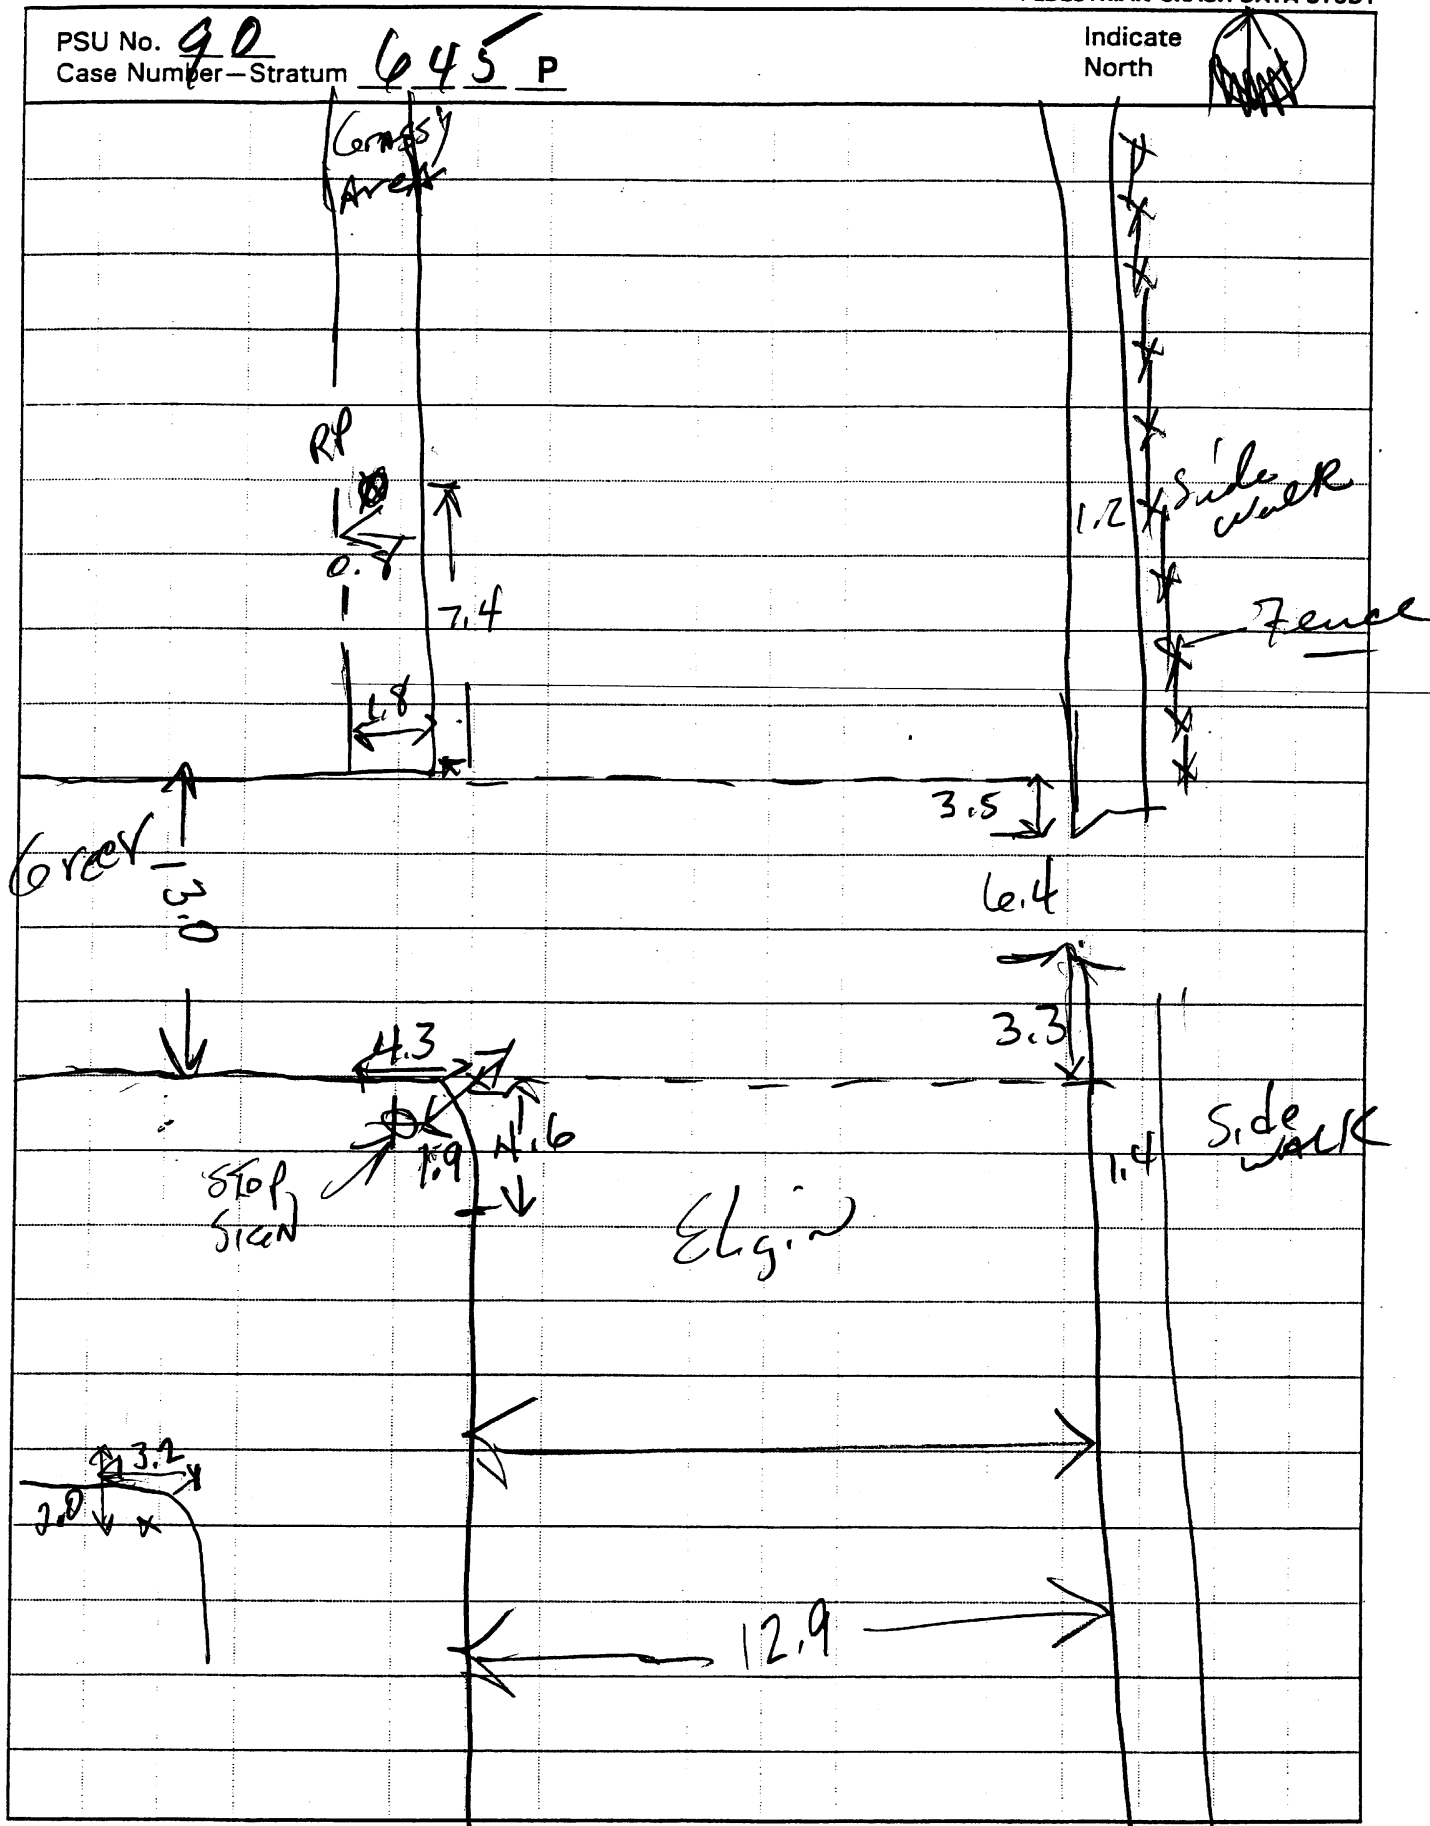 PSU No. 90
Case Number—Stratum 6 4 5 P
Indicate
North
Grassy
Area
RP
0.8
7.4
1.8
1.2
Side
walk
Fence
3.5
Greer
13.0
6.4
3.3
4.3
1.9
4.6
STOP
SIGN
Elgin
1.4
Side
WALK
3.2
2.0
12.9